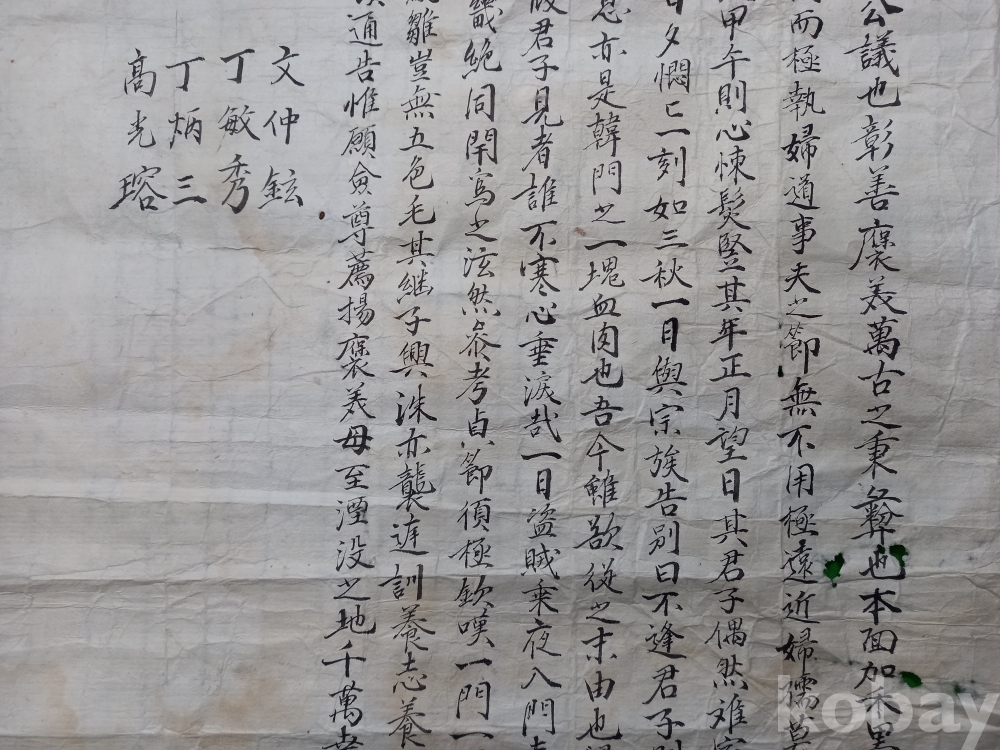 公議也彰善褒美萬古之秉彝也本面加禾里
而極執婦道事夫之節無不用極遠近婦孺莫
甲午則心悚髮竪其年正月望日其君子偶然难
日夕悶亡一刻如三秋一日與宗族告别曰不逢君子則
息亦是韓門之一塊血肉也吾今雖欲從之末由也
君子見者誰不寒心垂淚哉一日盜賊乘夜入門
幾絶同閈寫之泫然叅考貞節須極欽嘆一門一
雛豈無五色毛其継子興洙亦襲庭訓養志養
通告惟願僉尊薦揚褒美毋至湮没之地千萬幸
文仲鉉
丁敏秀
丁炳三
高光瑢
kobay